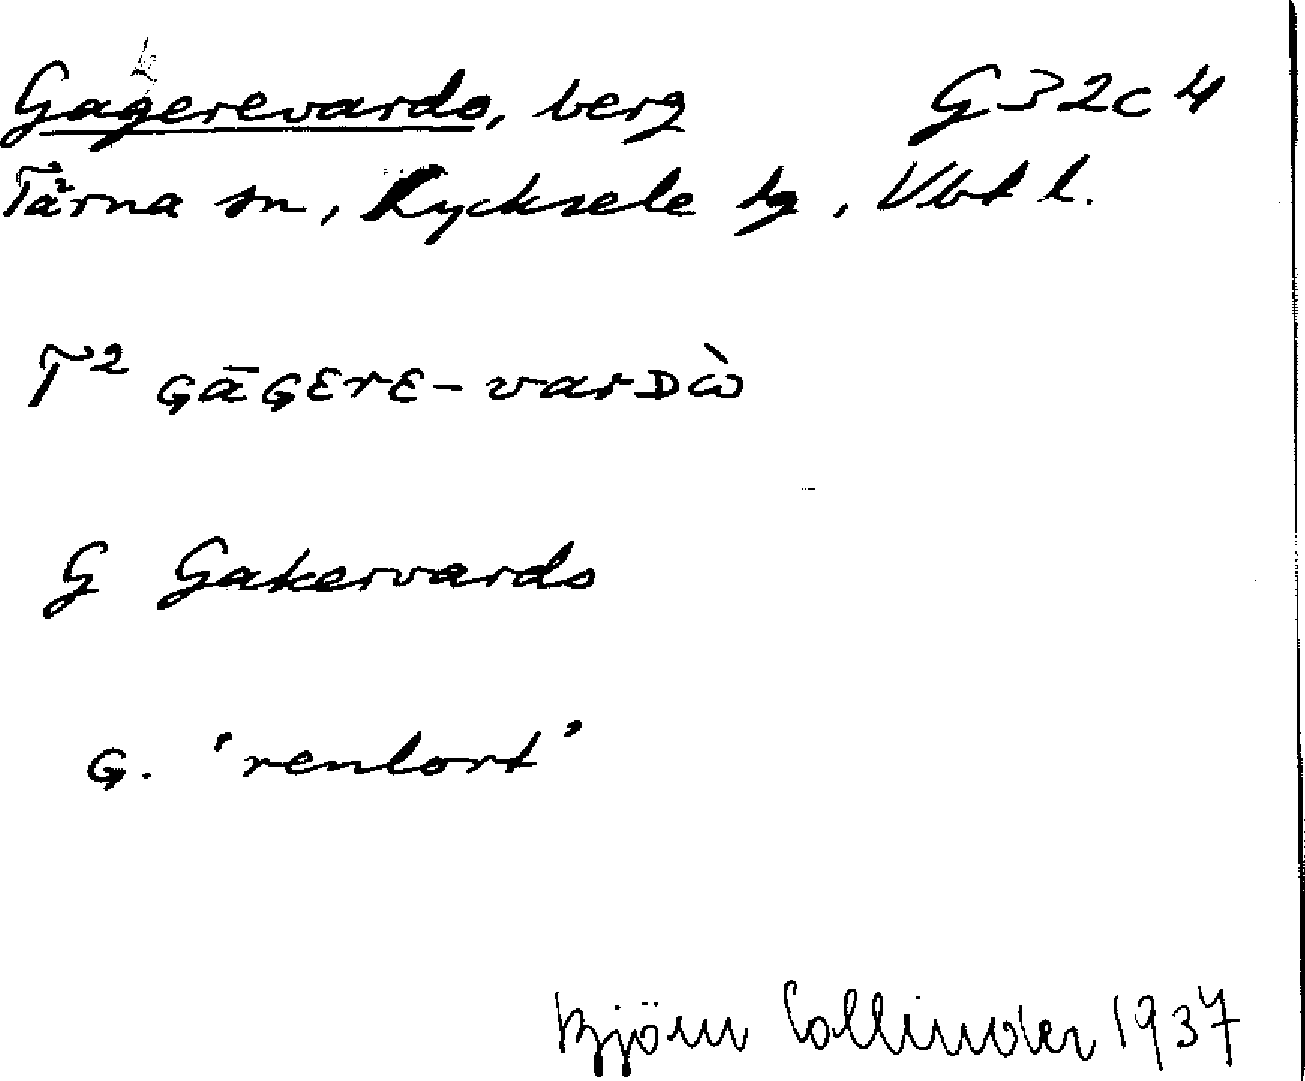 Gagerevardo, berg G32c4
Tärna sn, Lycksele lg, Vbtl l.
T² GĀGERE-varDὼ
G Gakervardo
G. 'renlort'
Björn Collinder 1937